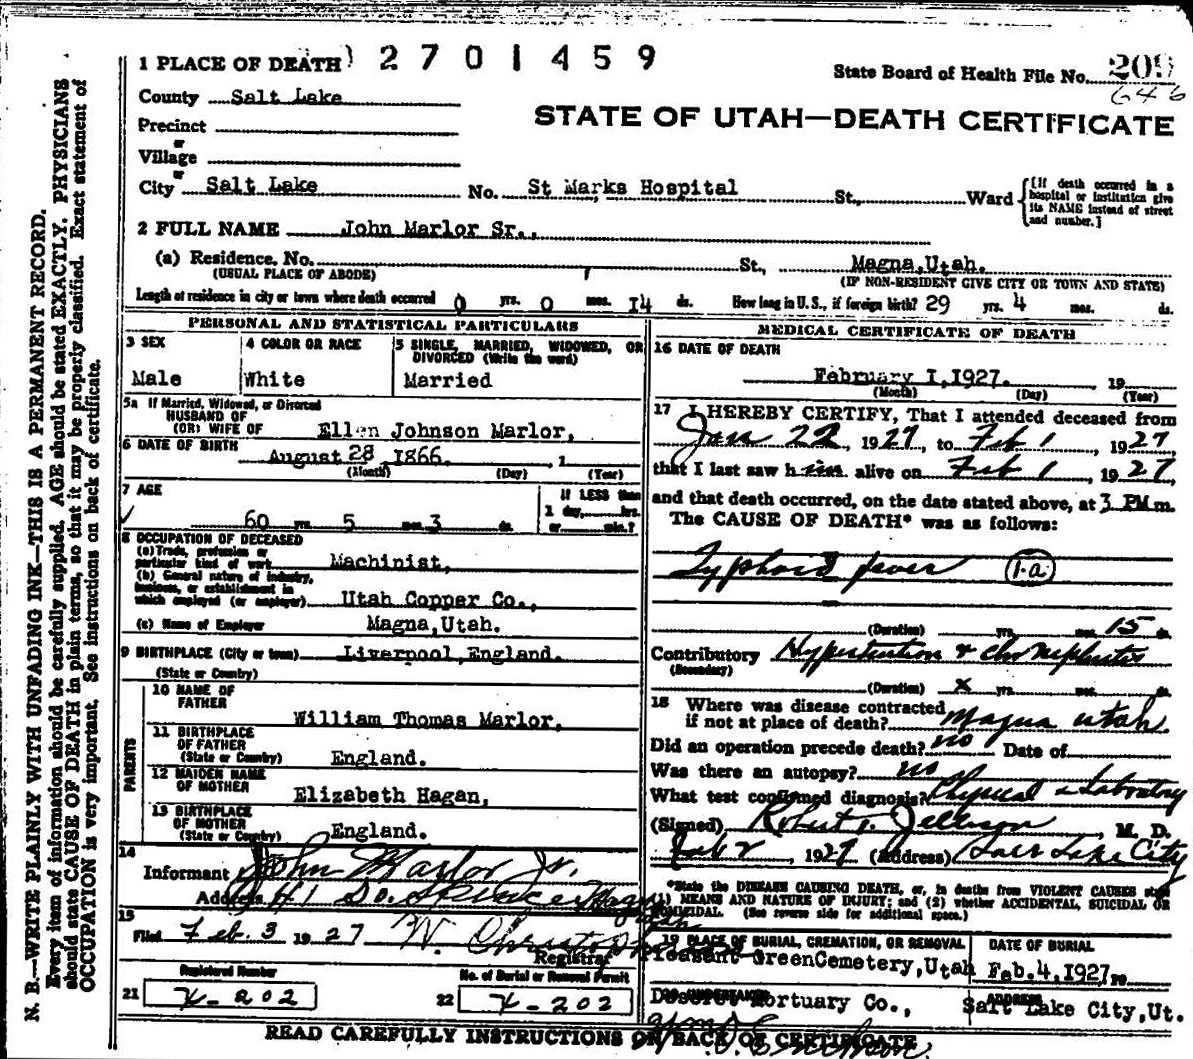 N. B.—WRITE PLAINLY WITH UNFADING INK—THIS IS A PERMANENT RECORD.
Every item of information should be carefully supplied. AGE should be stated EXACTLY. PHYSICIANS
should state CAUSE OF DEATH in plain terms, so that it may be properly classified. Exact statement of
OCCUPATION is very important. See instructions on back of certificate.
1 PLACE OF DEATH 2701459
State Board of Health File No. 209
646
County Salt Lake
STATE OF UTAH—DEATH CERTIFICATE
Precinct
or
Village
or
City Salt Lake No. St Marks Hospital St., Ward
[If death occurred in a
hospital or institution give
its NAME instead of street
and number.]
2 FULL NAME John Marlor Sr.,
(a) Residence. No. St., Magna,Utah.
(USUAL PLACE OF ABODE) (IF NON-RESIDENT GIVE CITY OR TOWN AND STATE)
Length of residence in city or town where death occurred 0 yrs. 0 mos. 14 ds. How long in U. S., if foreign birth? 29 yrs. 4 mos. ds.
PERSONAL AND STATISTICAL PARTICULARS
3 SEX
Male
4 COLOR OR RACE
White
5 SINGLE, MARRIED, WIDOWED, OR
DIVORCED (Write the word)
Married
5a If Married, Widowed, or Divorced
HUSBAND OF
(OR) WIFE OF Ellen Johnson Marlor,
6 DATE OF BIRTH August 28, 1866. , 1
(Month) (Day) (Year)
7 AGE
60 yrs. 5 mos. 3 ds.
If LESS than
1 day, hrs.
or min.?
8 OCCUPATION OF DECEASED
(a) Trade, profession or
particular kind of work Machinist,
(b) General nature of industry,
business, or establishment in
which employed (or employer) Utah Copper Co.,
(c) Name of Employer Magna,Utah.
9 BIRTHPLACE (City or town) Liverpool,England.
(State or Country)
PARENTS
10 NAME OF
FATHER
William Thomas Marlor,
11 BIRTHPLACE
OF FATHER
(State or Country) England.
12 MAIDEN NAME
OF MOTHER
Elizabeth Hagan,
13 BIRTHPLACE
OF MOTHER
(State or Country) England.
14
Informant John Marlor Jr.
Address
15
Filed Feb. 3 1927 W. Christopherson
Registrar
Registered Number
21 X-202
No. of Burial or Removal Permit
22 X-202
MEDICAL CERTIFICATE OF DEATH
16 DATE OF DEATH
February 1,1927. 19
(Month) (Day) (Year)
17 I HEREBY CERTIFY, That I attended deceased from
Jan 22, 1927, to Feb 1 1927
that I last saw him alive on Feb 1, 1927,
and that death occurred, on the date stated above, at 3 PM m.
The CAUSE OF DEATH* was as follows:
Typhoid fever 1-a
(Duration) yrs. mos. 15 ds.
Contributory Hypertention & chr nephritis
(Secondary)
(Duration) x yrs. mos. ds.
18 Where was disease contracted
if not at place of death? Magna utah
Did an operation precede death? no Date of
Was there an autopsy? no
What test confirmed diagnosis? Physical & Laboratory
(Signed) Robert T. Jellison, M. D.
Feb 2, 1927 (Address) Salt Lake City
*State the DISEASE CAUSING DEATH, or, in deaths from VIOLENT CAUSES state
(1) MEANS AND NATURE OF INJURY; and (2) whether ACCIDENTAL, SUICIDAL OR
HOMICIDAL. (See reverse side for additional space.)
19 PLACE OF BURIAL, CREMATION, OR REMOVAL
Pleasant GreenCemetery,Utah
DATE OF BURIAL
Feb.4,1927 19
20 UNDERTAKER
Deseret Mortuary Co.,
ADDRESS
Salt Lake City,Ut.
READ CAREFULLY INSTRUCTIONS ON BACK OF CERTIFICATE